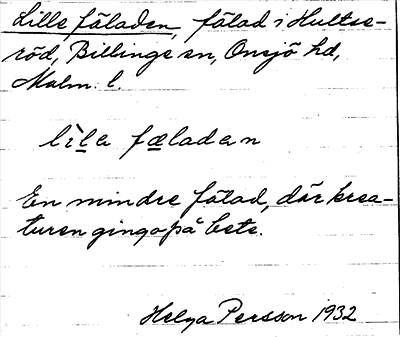 Lille fäladen, fälad i Hultse-
röd, Billinge sn, Onsjö hd,
Malm. l.
lìla fæladan
En mindre fälad, där krea-
turen gingo på bete.
Helga Persson 1932